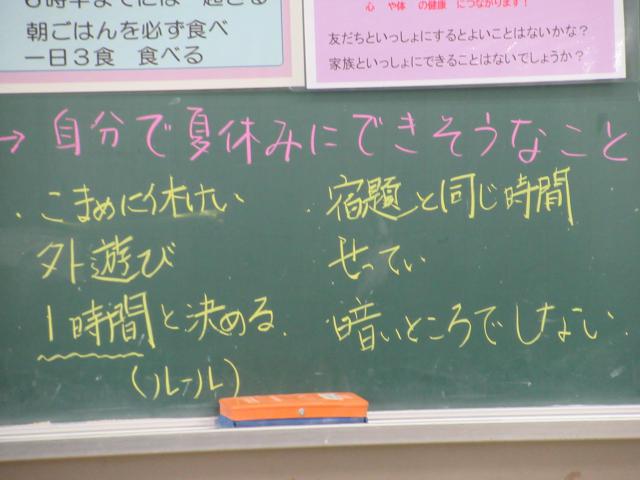 6時半までには 起きる
朝ごはんを必ず食べ
一日3食 食べる
心 や体 の健康 につながります!
友だちといっしょにするとよいことはないかな?
家族といっしょにできることはないでしょうか?
→ 自分で夏休みにできそうなこと
・こまめに休けい
外遊び
1時間と決める.
(ルール)
・宿題と同じ時間
せってい
暗いところでしない.